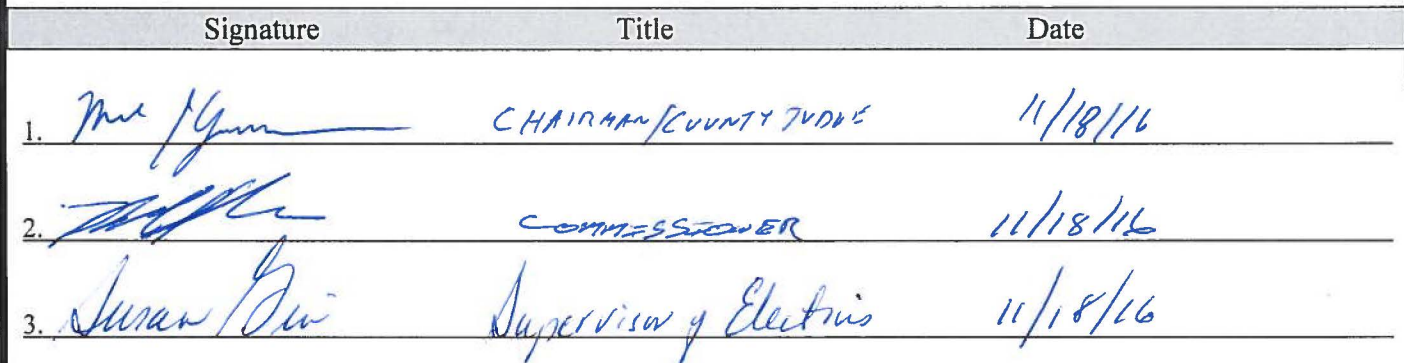 Signature Title Date
1. CHAIRMAN/COUNTY JUDGE 11/18/16
2. COMMISSIONER 11/18/16
3. Susan Supervisor of Elections 11/18/16